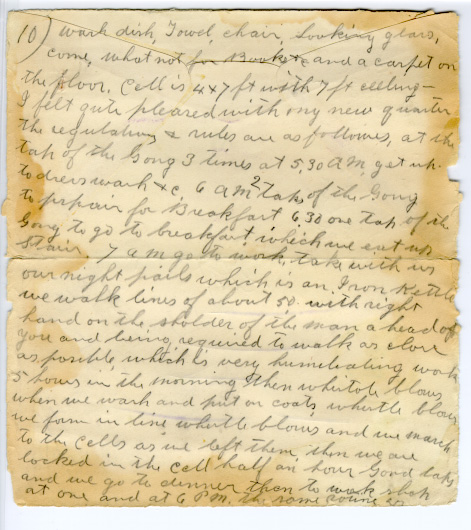 10) wash dish, Towel, chair, Looking glass,
come, what not for Books &c and a carpet on
the floor. Cell is 4x7 ft with 7 ft celling —
I felt qute pleased with my new quarter
the regulations & rules are as followes, at the
tap of the Gong 3 times at 5,30 A.M. get up
to dress wash &c, 6 am 2 taps of the Gong
to prpair for Breakfast 6 30 one tap of the
Gong to go to breakfast which we eat up
Stair. 7 am go to work, take with us
our night pails which is an Iron Kettle
we walk lines of about 50 with right
hand on the sholder of the man a head of
you and being required to walk as close
as posible which is very humileating work
5 hours in the morning then whistole blows
when we wash and put on coats, whistle blows
we form in line whistle blows and we march
to the cells as we left them, then we are
locked in the cell half an hour Gond taps
and we go to dinner then to work shop
at one and at 6 P.M. the same